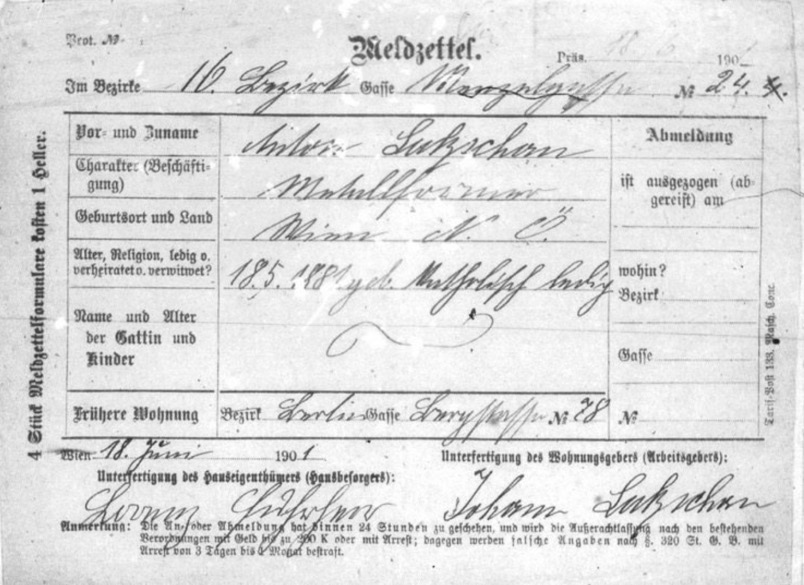 Prot. №
Meldzettel.
Präs. 18 6 190
Im Bezirke 16. Bezirk Gasse № 24.
Vor- und Zuname Anton Lukschan
Abmeldung
Charakter (Beschäfti-
gung) Metallformer
ist ausgezogen (ab-
gereist) am
Geburtsort und Land Wien N. Ö.
Alter, Religion, ledig o.
verheiratet o. verwitwet? 18.5. 1881 geb. Katholisch ledig
wohin?
Bezirk
Name und Alter
der Gattin und
Kinder
Gasse
Frühere Wohnung Bezirk Berlin Gasse Bergstrasse № 78
№
Wien 18. Juni 1901
Unterfertigung des Hauseigenthümers (Hausbesorgers):
Unterfertigung des Wohnungsgebers (Arbeitsgebers):
Johann Lukschan
Anmerkung: Die An- oder Abmeldung hat binnen 24 Stunden zu geschehen, und wird die Außerachtlassung nach den bestehenden
Verordnungen mit Geld bis zu 200 K oder mit Arrest; dagegen werden falsche Angaben nach §. 320 St. G. B. mit
Arrest von 3 Tagen bis 1 Monat bestraft.
4 Stück Meldzettelformulare kosten 1 Heller.
Tarif-Post 133